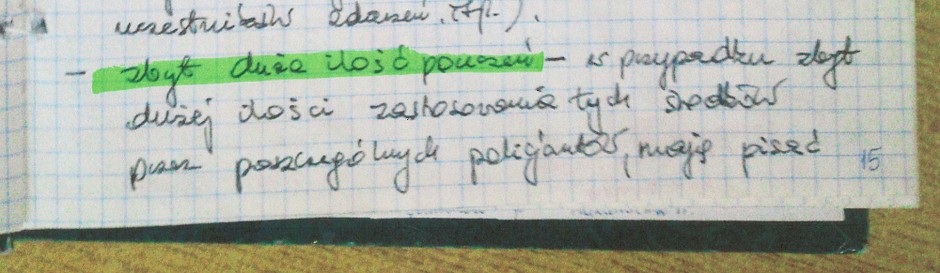 uczestników zdarzeń
- zbyt duża ilość pouczeń - w przypadku zbyt
dużej ilości zastosowania tych środków
przez poszczególnych policjantów, mają pisać
15